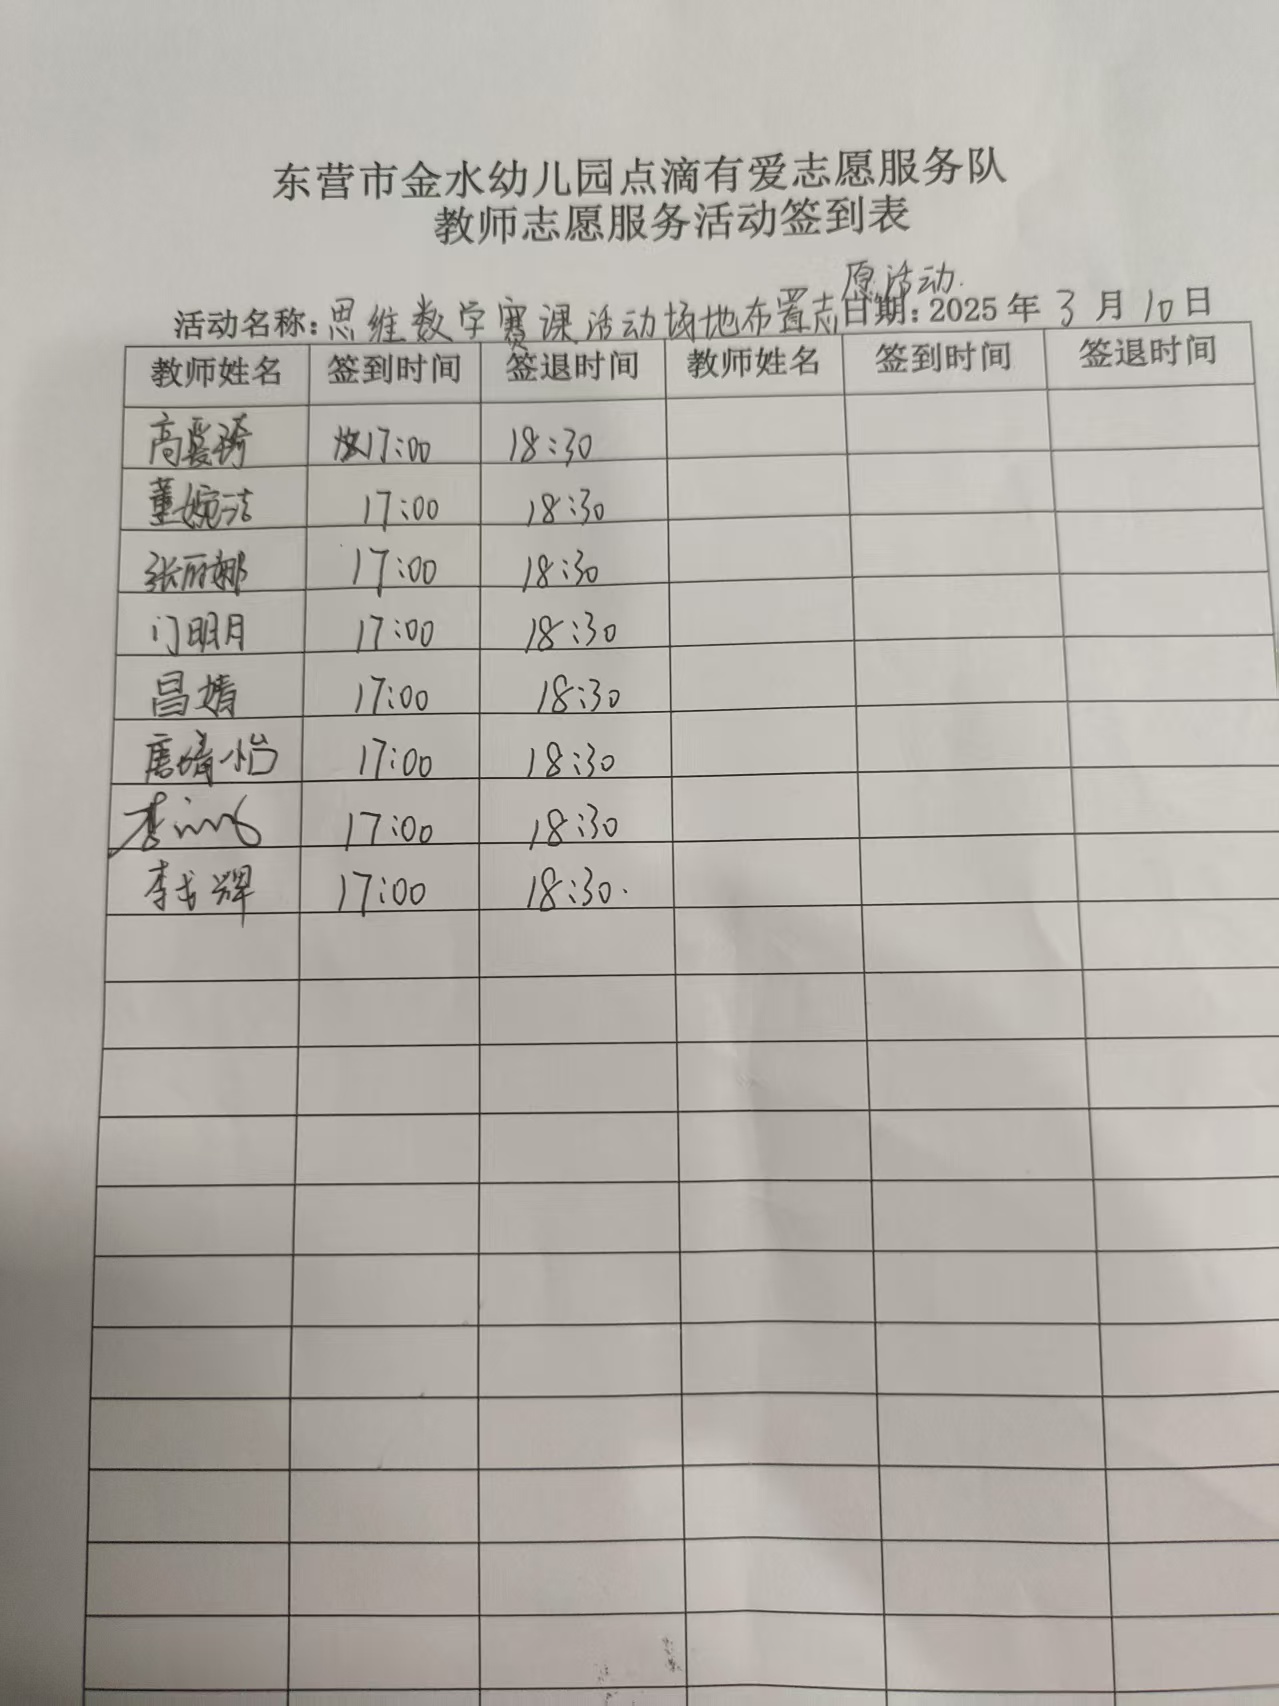 东营市金水幼儿园点滴有爱志愿服务队
教师志愿服务活动签到表
活动名称：思维数学赛课活动场地布置志愿活动 日期：2025年3月10日
教师姓名 签到时间 签退时间 教师姓名 签到时间 签退时间
高 17:00 18:30
董婉洁 17:00 18:30
张丽娜 17:00 18:30
门明月 17:00 18:30
昌婧 17:00 18:30
唐靖怡 17:00 18:30
李 17:00 18:30
李戈辉 17:00 18:30